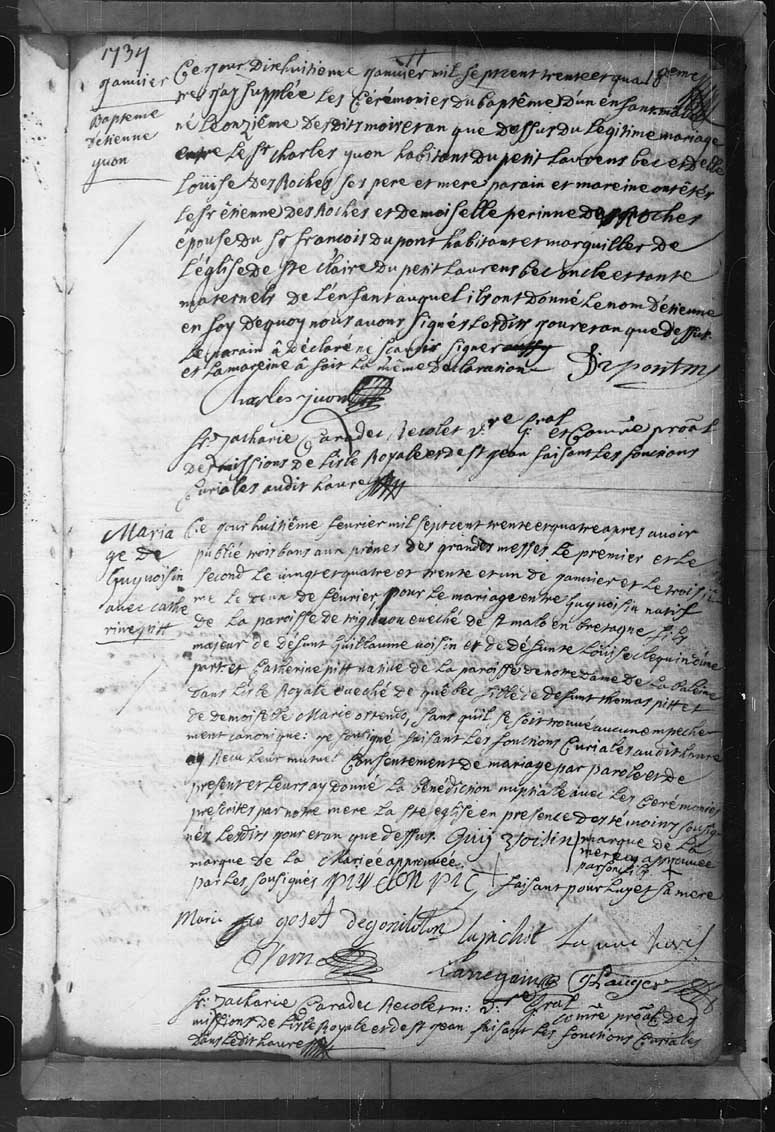 1734
Janvier
Bapteme
D'etienne
yuon
Ce jour Dixhuitiême Janvier mil Septcent trente et qua 18eme
tre j'ay supplée Les Cérémonies du baptême D'un enfant male
né Le onzième Desdits mois et an que Dessus du Légitime mariage
entre Le Sr Charles yuon habitant du petit Laurens bec et Delle
Loüise Des Roches ses pere et mere parain et mareine ont étés
Le Sr étienne Des Roches et Demoiselle perinne Des Roches
epouse du Sr francois Du pont habitant et marguiller De
L'église De Ste Claire Du petit Laurens bec oncle et tante
maternels De L'enfant auquel ils ont donné Le nom D'étienne
en foy Dequoy nous avons signés Lesdits jour et an que Dessus
Le parain â Déclaré ne scavoir signer
et La mareine â fait La même Déclaration
Charles yuon
fr. Zacharie Caradec Recolet v.re G.ral et Comre proal
Des missions De L'isle Royale et de st jean faisant Les fonctions
Curiales audit havre
Maria
ge De
Guy uoisin
avec cathe
rine pitt
Ce jour huitiême fevrier mil Septcent trente et quatre apres avoir
publié trois bans aux prônes des grandes messes Le premier et Le
second Le vingt et quatre et trente et un de janvier et Le troisiê
me Le de fevrier, pour Le mariage entre Guy uoisin natif
de La paroisse de eveché de st malo en bretagne fils
majeur de défunt Guillaume uoisin et de défunte Loüise d'une
part et Catherine pitt native de La paroisse de notre dame de La baleine
dans L'isle Royale eveché de québec fille de defunt thomas pitt et
de demoiselle Marie ostendo, sans qu'il se soit trouvé aucun empeche
ment canonique: je sousigné faisant Les fonctions Curiales audit havre
ay Recu Leur mutuel Consentement de mariage par parole et de
present et Leurs ay donné La bénédiction nuptiale avec Les Ceremonies
prescrites par notre mere La Ste eglise en presence des témoins sousig
nés Lesdits jour et an que dessus. Guÿ Voisin marque de La
mere approuvée
par son fils +
marque de La Mariée approuvée
par Les sousignés + faisant pour Luy et sa mere
Marie
fr. Zacharie Caradec Recolet v.re G.ral comre proal des
missions de L'isle Royale et de st jean faisant Les fonctions Curiales
Dans Ledit havre